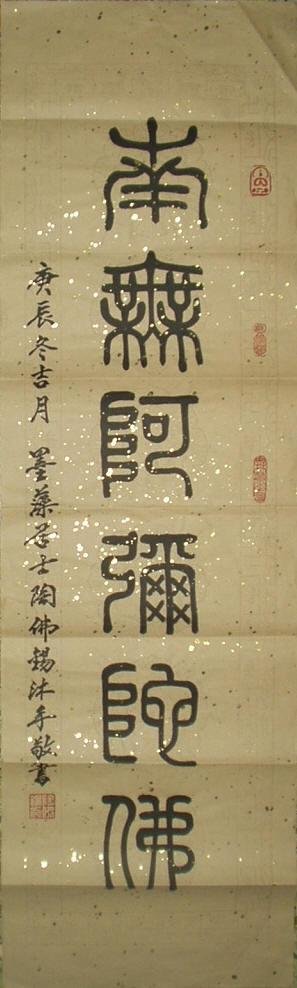 南無阿彌陀佛
庚辰冬吉月 墨藥居士陶佛錫沐手敬書